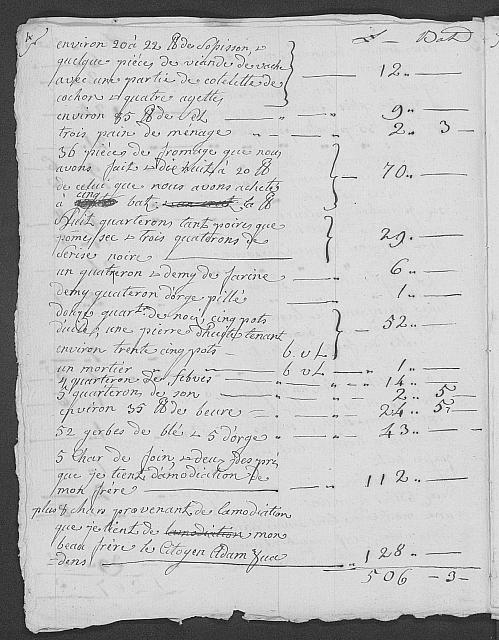 L — Bat
environ 20 à 22 lb de Sossisson, &
quelque pièces de viande de vache
avec une partie de cotelette de
cochon & quatre ayettes — 12 „ —
environ 35 lb de — — 9 „ —
trois pain de menage — „ — 2 „ 3 —
36 pièces de fromage que nous
avons fait & dix huit à 20 lb — 70 „ —
de celui que nous avons achetez
à cinq bat la lb
Huit quarterons tant poires que
pomes sec & trois quaterons de — 29 „ —
serise noire
un quatreron & demy de farine — 6 „ —
demy quateron d'orge pillé — 1 „ —
douze quartns de noi, cinq pots
d'uile, une pierre d'huile tenant — 52 „ —
environ trente cinq pots — b. v L
un mortier — b v L — „ 1 „ —
4 quarteron de febves — „ 14 „ —
5 quarteron de son — „ 2 „ 5 —
environ 35 lb de beure — „ 24 „ 5 —
52 gerbes de blé & 5 d'orge — „ 43 „ —
5 char de foin & deux des pré
que je tient d'amodiation de — 112 „ —
mon frère
plus 8 chars provenant de lamodiation
que je tient de lamodiation mon
beau frère le Citoyen Adam
dens — „ 128 „ —
506 — 3 —